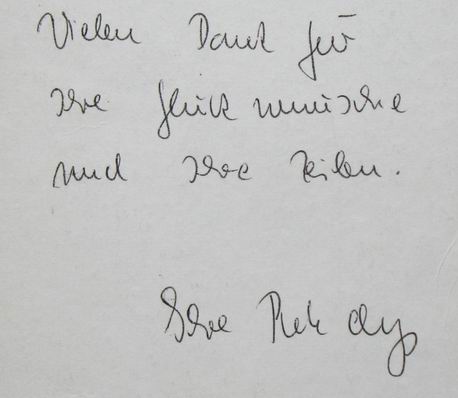 Vielen Dank für
Ihre Glückwünsche
und Ihre Zeilen.
Ihre